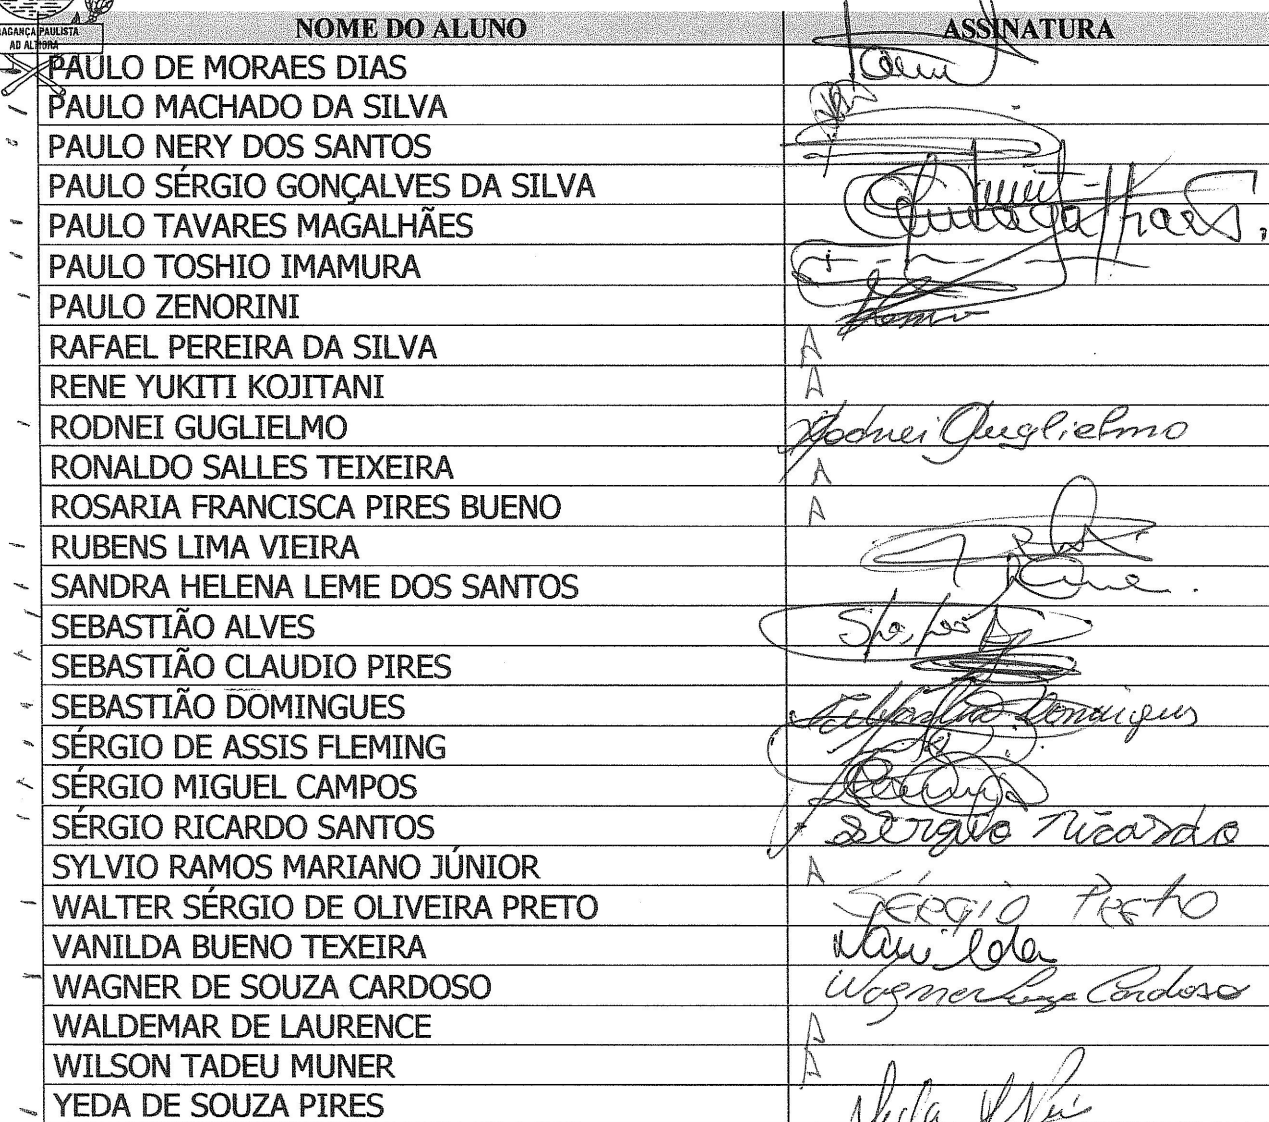 BRAGANÇA PAULISTA
AD ALTIORA
NOME DO ALUNO ASSINATURA
PAULO DE MORAES DIAS
PAULO MACHADO DA SILVA
PAULO NERY DOS SANTOS
PAULO SÉRGIO GONÇALVES DA SILVA
PAULO TAVARES MAGALHÃES
PAULO TOSHIO IMAMURA
PAULO ZENORINI
RAFAEL PEREIRA DA SILVA A
RENE YUKITI KOJITANI A
RODNEI GUGLIELMO Rodnei Guglielmo
RONALDO SALLES TEIXEIRA A
ROSARIA FRANCISCA PIRES BUENO A
RUBENS LIMA VIEIRA
SANDRA HELENA LEME DOS SANTOS
SEBASTIÃO ALVES
SEBASTIÃO CLAUDIO PIRES
SEBASTIÃO DOMINGUES Sebastião Domingues
SÉRGIO DE ASSIS FLEMING
SÉRGIO MIGUEL CAMPOS
SÉRGIO RICARDO SANTOS Sérgio Ricardo
SYLVIO RAMOS MARIANO JÚNIOR A
WALTER SÉRGIO DE OLIVEIRA PRETO SÉRGIO PRETO
VANILDA BUENO TEXEIRA Vanilda
WAGNER DE SOUZA CARDOSO Wagner Souza Cardoso
WALDEMAR DE LAURENCE A
WILSON TADEU MUNER A
YEDA DE SOUZA PIRES